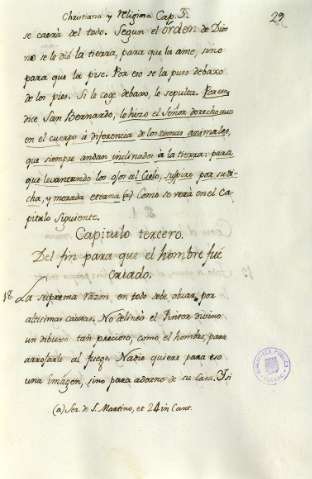 Christiana y religiosa Cap. 3.
29
se caería del todo. Segun el orden de Dios
no se le dió la tierra, para que la ame, sino
para que la pise. Por eso se la puso debaxo
de los pies. Si le coge debaxo, le sepulta. Por eso
dice San Bernardo, le hizo el Señor derecho aun
en el cuerpo à diferencia de los demas animales,
que siempre andan inclinados à la tierra: para
que levantando los ojos al Cielo, suspire por su di-
cha, y morada eterna (a) Como se verà en el Ca-
pitulo siguiente.
Capitulo tercero.
Del fin para que el hombre fué
criado.
18. La suprema razon en todo debe obrar por
altisimas causas. No delineó el Pintor divino
un dibuxo tan precioso, como el hombre, para
arrojarle al fuego. Nadie quiere para eso
una imagen, sino para adorno de su casa. Si
(a) Ser. de S. Martino, et 24 in Cant.